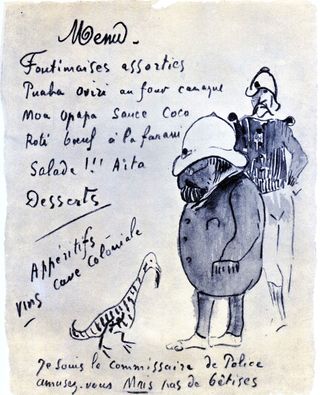 Menu.
Foutimaises assorties
Puaba oviri au four canaque
Moa opapa Sauce Coco
Roti bœuf à la farani
Salade !!! Aita
Desserts
Appéritifs
vins cave coloniale
Je suis le Commissaire de Police
amusez-vous Mais pas de bêtises